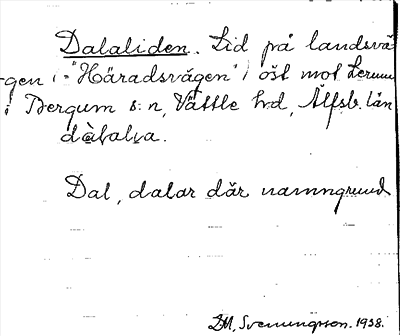 Dalaliden. Lid på landsvä-
gen (="Häradsvägen") öst mot Lerum
i Bergum s:n, Vättle hd, Älfsb. län
dàlalia.
Dal, dalar där namngrund
IM, Svenungsson. 1938.